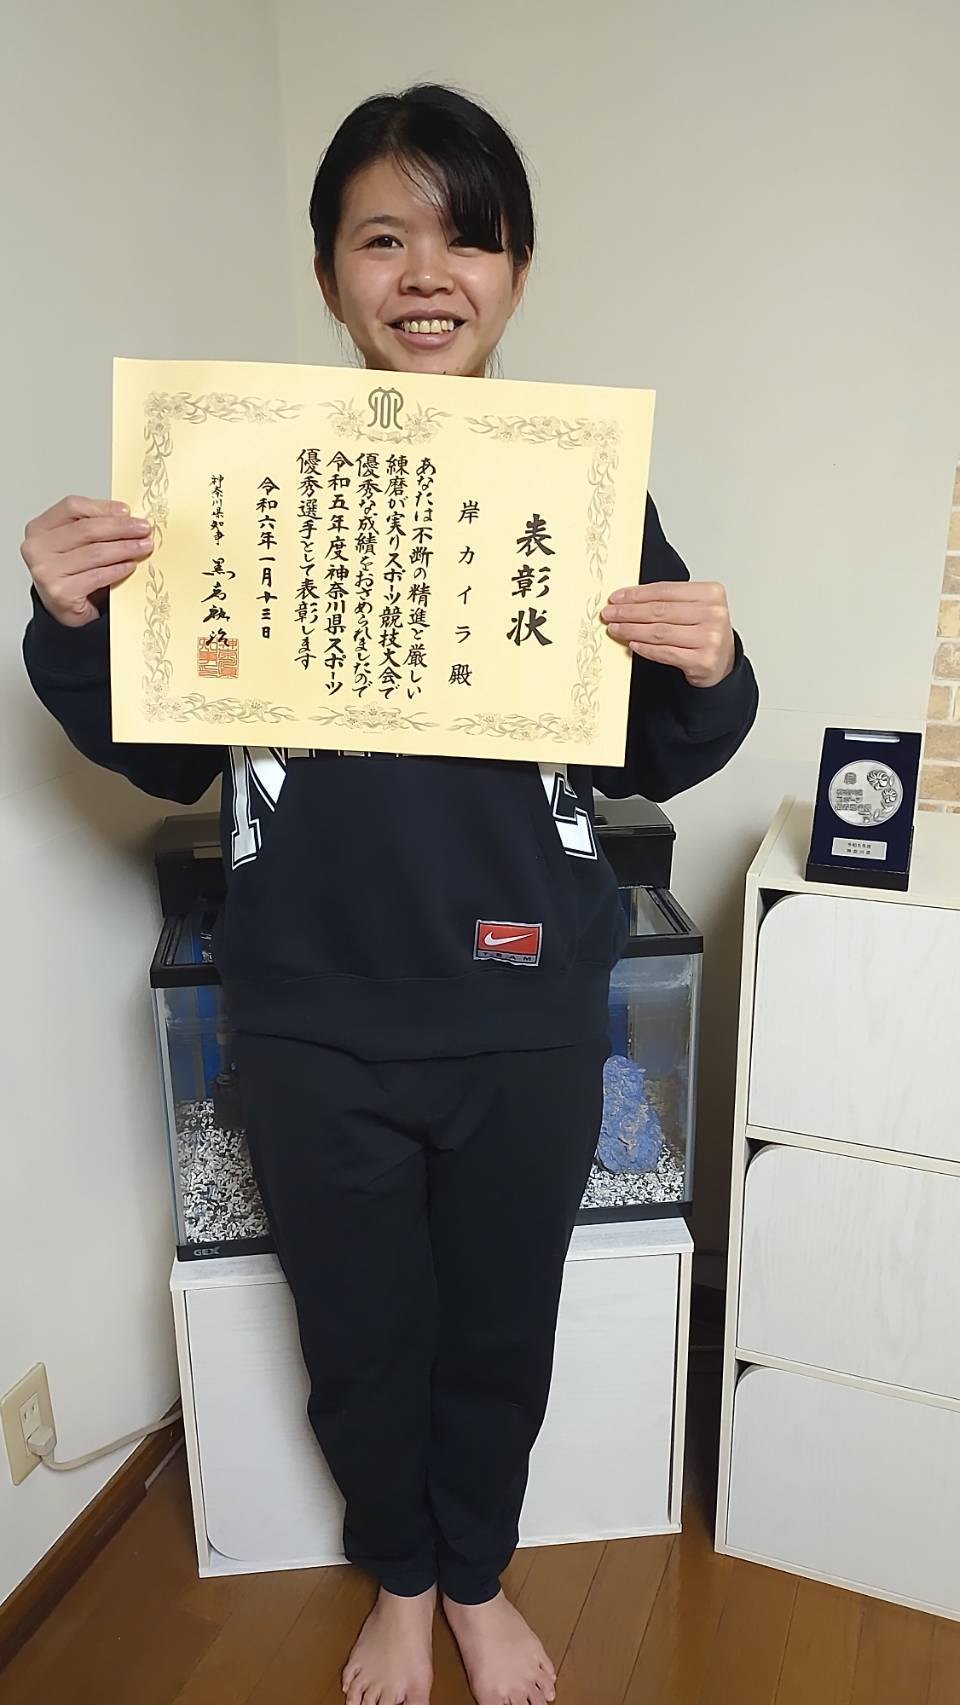 表彰状
岸カイラ殿
あなたは不断の精進と厳しい
練磨が実りスポーツ競技大会で
優秀な成績をおさめられましたので
令和五年度神奈川県スポーツ
優秀選手として表彰します
令和六年一月十三日
神奈川県知事 黒岩祐治
TEAM
GEX
令和5年度
神奈川県